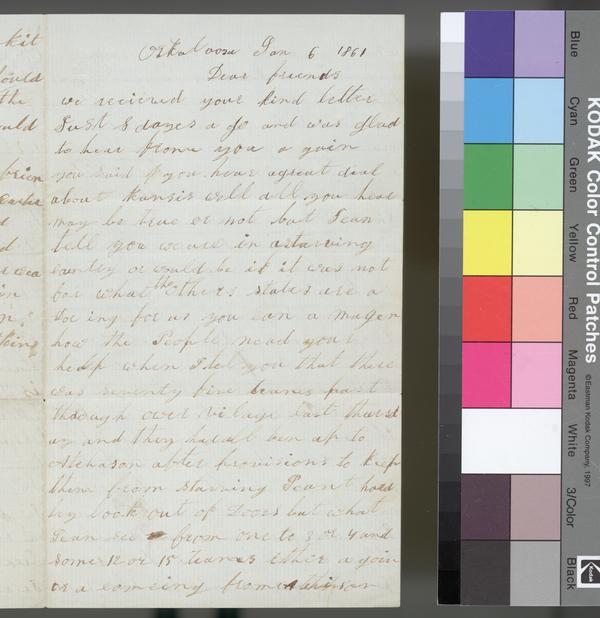 kit
ould
the
ould
brien
d
d
in
n
Oskaloosa Jan 6 1861
Dear friends
we recieved your kind letter
Just 8 dayes a go and was glad
to hear frome you a gain
you said if you hear agreat deal
about Kansis well all you hear
may be true or not but I can
tell you we are in astarving
contry or would be if it was not
for what the others states are a
doe ing for us you can a magen
how the People nead your
healp when I tel you that there
was seventy five teames past
through over village last thursd
ay and they had all ben up to
Atchason after provisions to keep
them from starving I cant hard
ley look out of Doors but what
I can see from one to 3 or 4 and
some 12 or 15 teames Ether a goin
or a comeing from Atchison
KODAK Color Control Patches
©Eastman Kodak Company, 1997
Blue
Cyan
Green
Yellow
Red
Magenta
White
3/Color
Black
Kodak